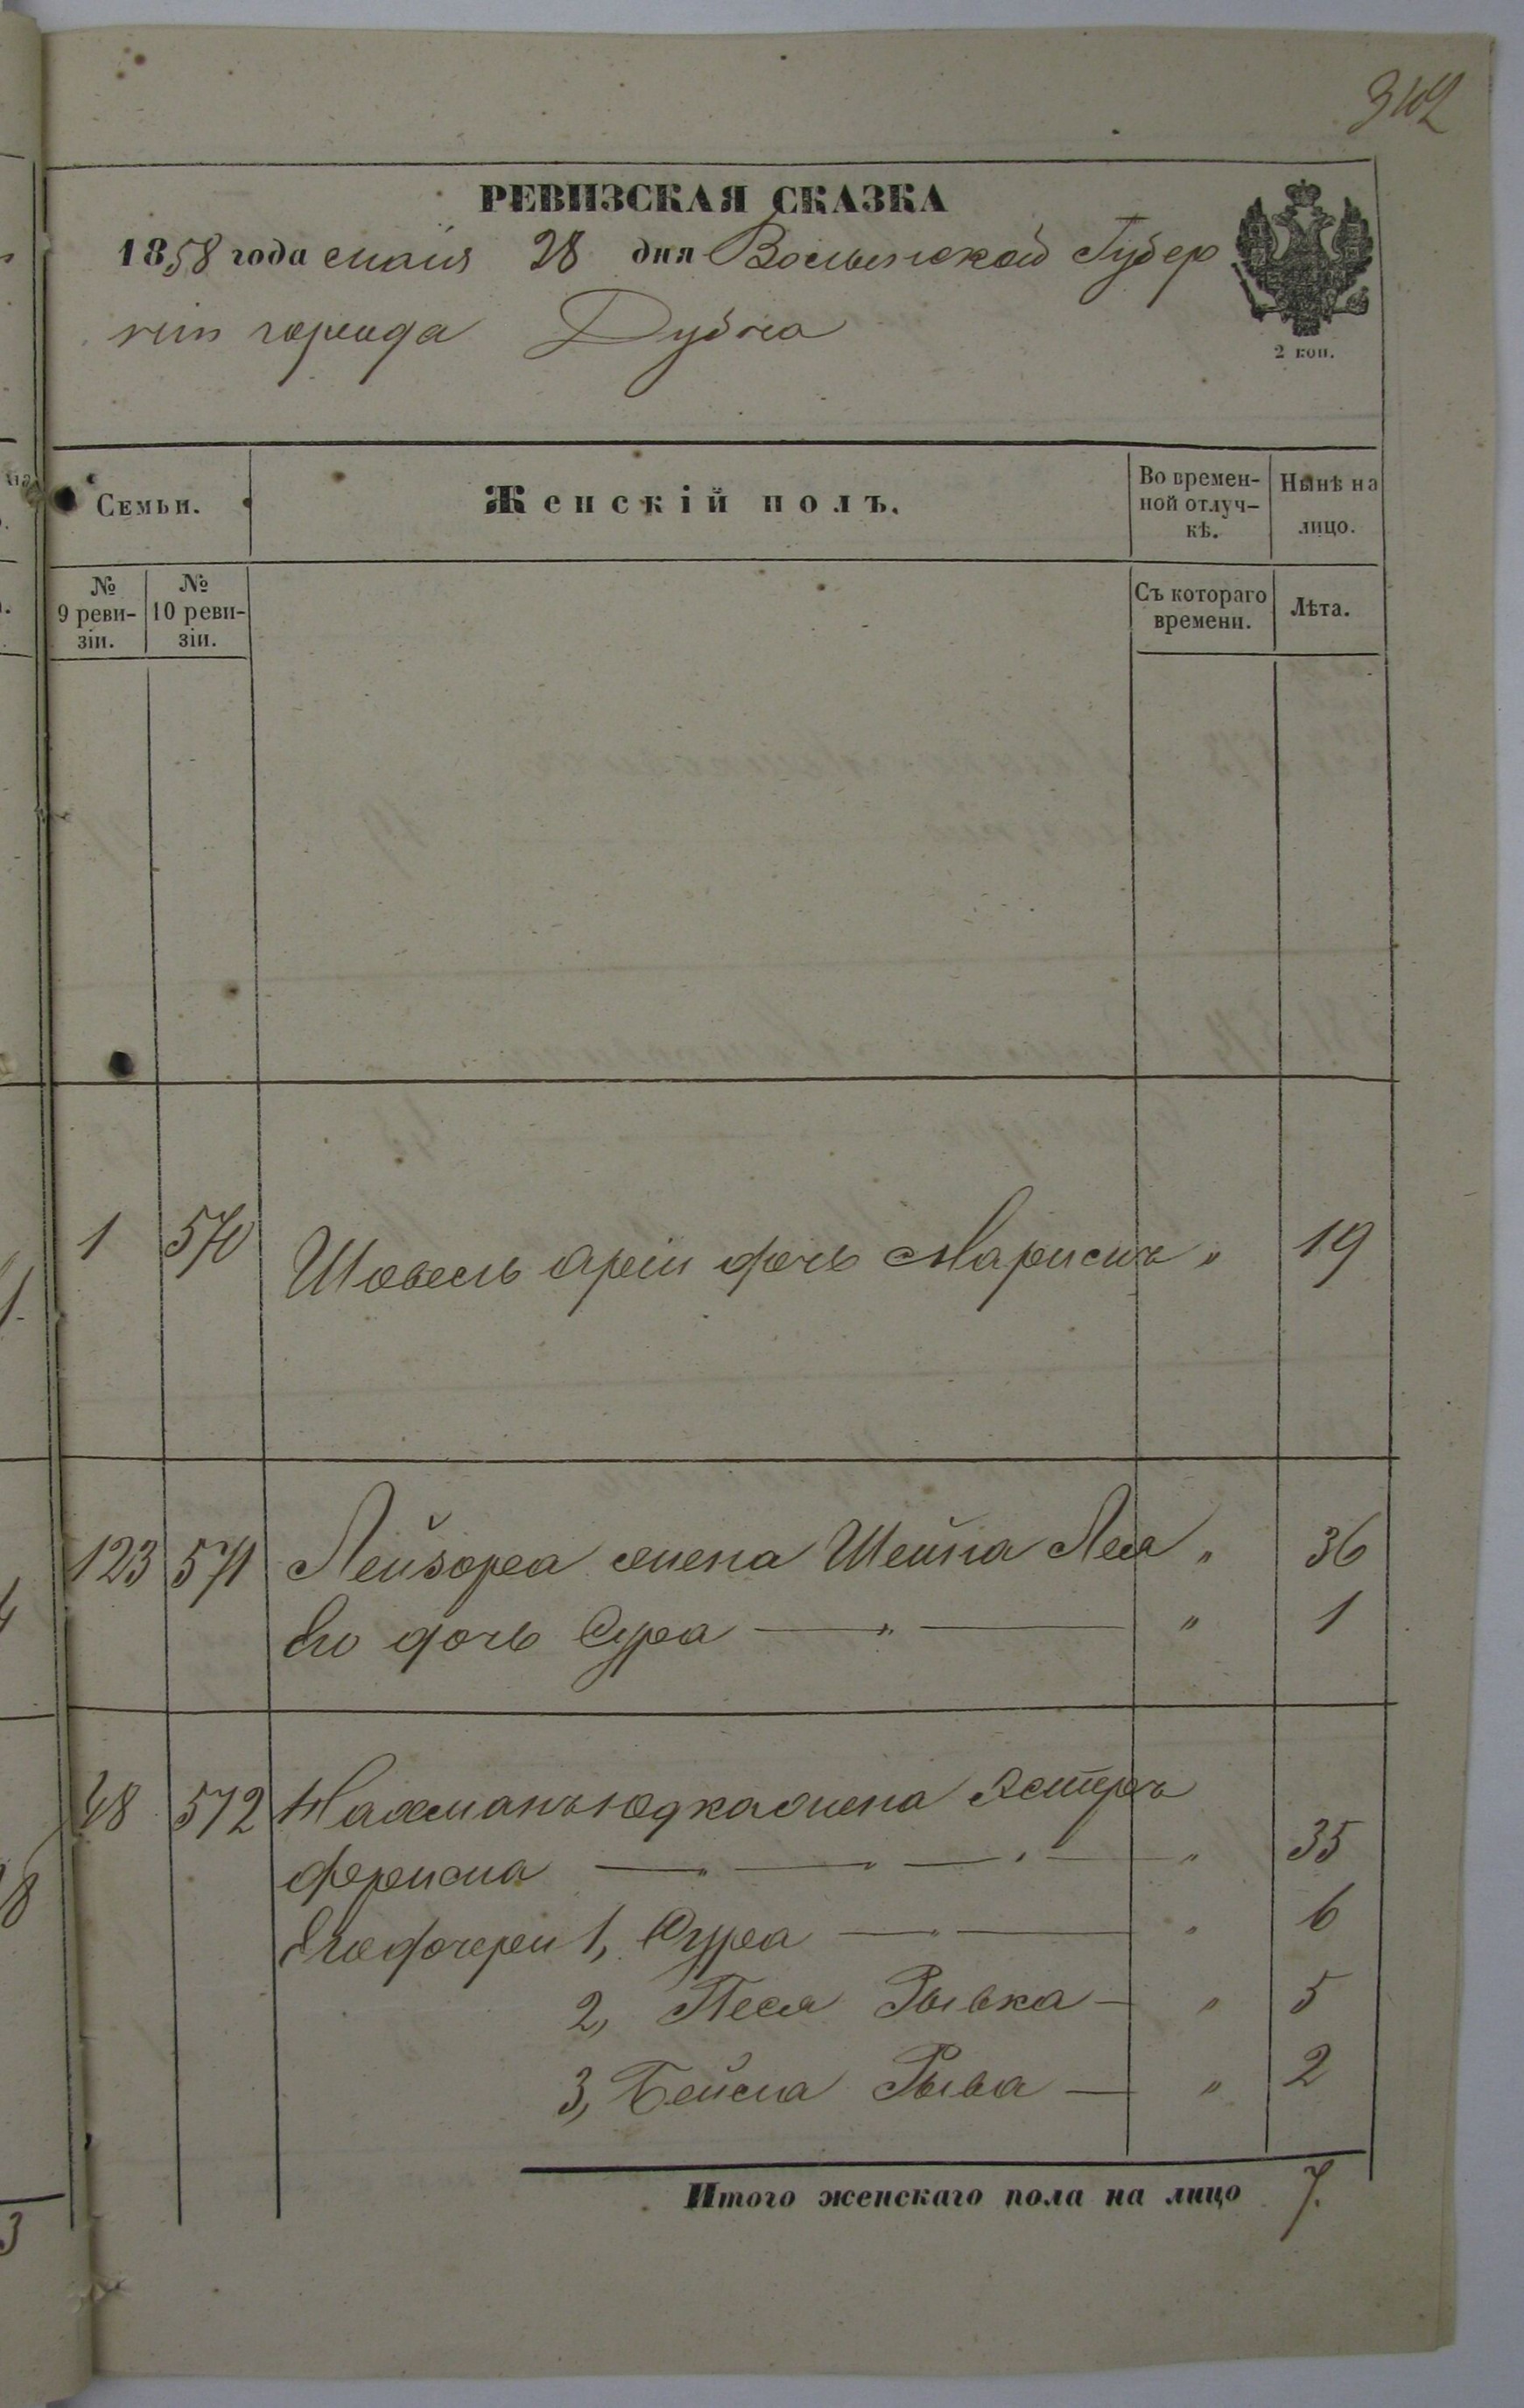 342
РЕВИЗСКАЯ СКАЗКА
1858 года маія 28 дня Волынской Губер
ніи города Дубна
2 коп.
Семьи.
Женскій полъ.
Во времен-
ной отлуч-
кѣ.
Нынѣ на
лицо.
№
9 реви-
зіи.
№
10 реви-
зіи.
Съ котораго
времени.
Лѣта.
1 570 дочь " 19
123 571 Лейзора жена Шейна Лея " 36
Его дочь Сура — " — " 1
48 572 Нахманъ Юдка жена Эстеръ
Фрима — " — " — " — " 35
Его дочери 1, Сура — " — " 6
2, Песя Рывка — " 5
3, Бейла Рыва — " 2
Итого женскаго пола на лицо 7.